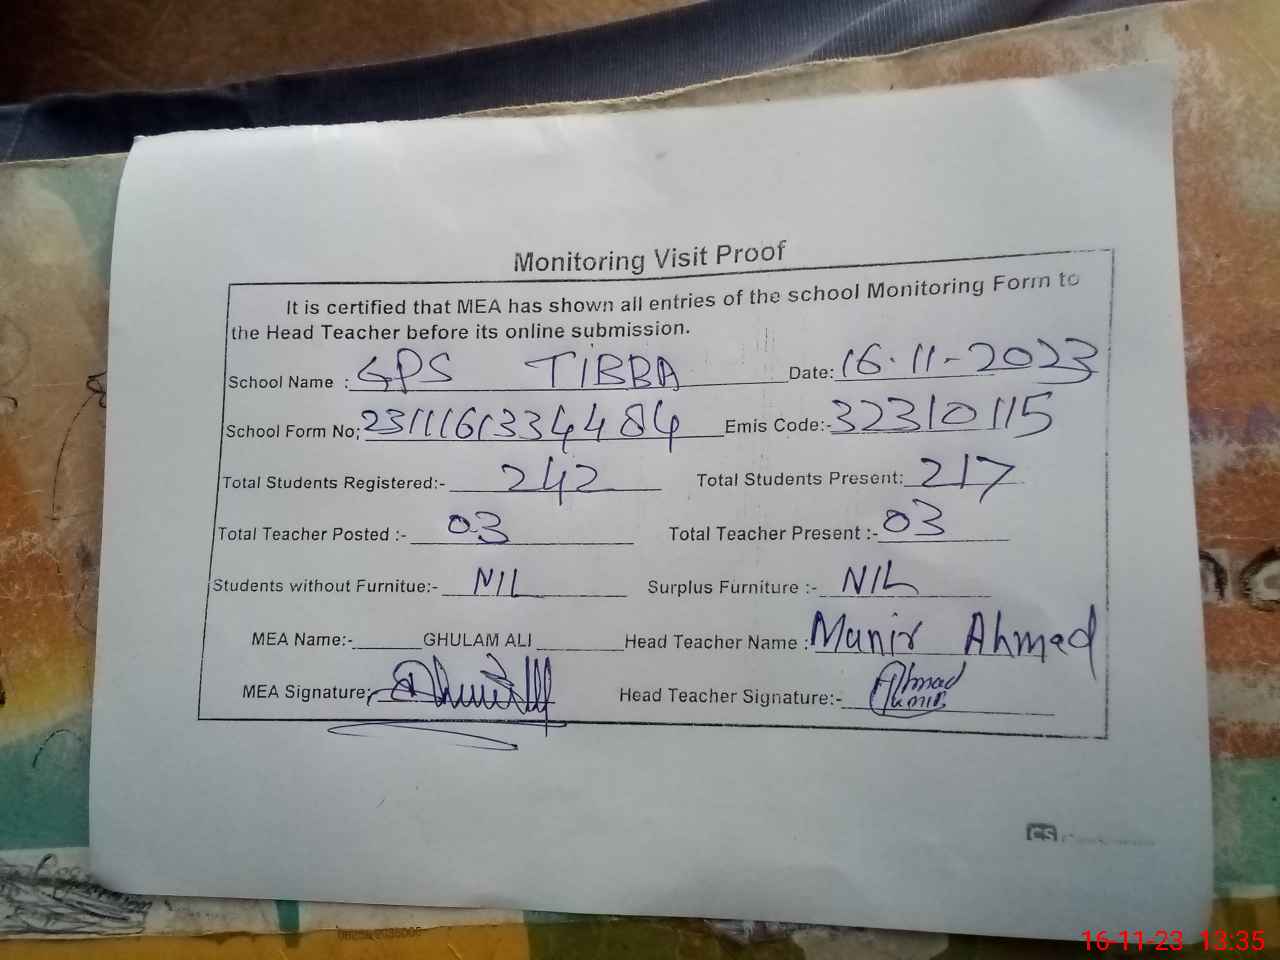 Monitoring Visit Proof
It is certified that MEA has shown all entries of the school Monitoring Form to
the Head Teacher before its online submission.
School Name : GPS TIBBA Date: 16-11-2023
School Form No: 2311161334484 Emis Code:- 32310115
Total Students Registered:- 242 Total Students Present: 217
Total Teacher Posted :- 03 Total Teacher Present :- 03
Students without Furnitue:- NIL Surplus Furniture :- NIL
MEA Name:- GHULAM ALI Head Teacher Name : Munir Ahmad
MEA Signature: Head Teacher Signature:- Ahmad
CS
16-11-23 13:35